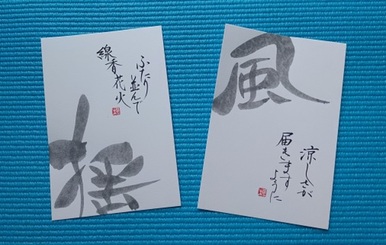 ふたり
並んで
線香花火
風
涼しさが
届きます
ように